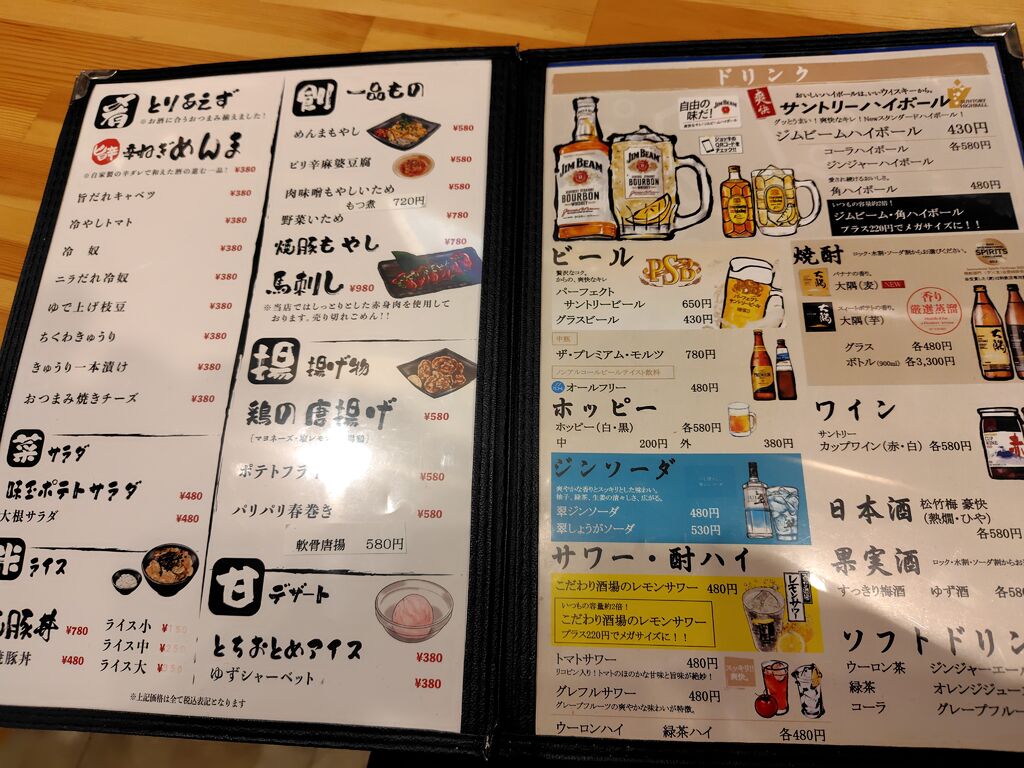 肴 とりあえず
※お酒に合うおつまみ揃えました！
旨辛 辛ねぎめんま ¥380
※自家製の辛ダレで和えた酒の進む一品！
旨だれキャベツ ¥380
冷やしトマト ¥380
冷 奴 ¥380
ニラだれ冷奴 ¥380
ゆで上げ枝豆 ¥380
ちくわきゅうり ¥380
きゅうり一本漬け ¥380
おつまみ焼きチーズ ¥380
菜 サラダ
味玉ポテトサラダ ¥480
大根サラダ ¥480
米 ライス
豚丼 ¥780
豚丼 ¥480
ライス小 ¥150
ライス中 ¥250
ライス大 ¥350
※上記価格は全て税込表記となります
創 一品もの
めんまもやし ¥580
ピリ辛麻婆豆腐 ¥580
肉味噌もやしいため ¥580
もつ煮 720円
野菜いため ¥780
焼豚もやし ¥780
馬刺し ¥980
※当店ではしっとりとした赤身肉を使用して
おります。売り切れごめん！！
揚 揚げ物
鶏の唐揚げ ¥580
ポテトフライ ¥580
パリパリ春巻き ¥580
軟骨唐揚 580円
甘 デザート
とちおとめアイス ¥380
ゆずシャーベット ¥380
ドリンク
自由の味だ！
JIM BEAM
JIM BEAM
BOURBON
WHISKEY
JIM BEAM
BOURBON
WHISKEY
ジョッキの
QRコードを
チェック！！
爽快
おいしいハイボールは、いいウイスキーから。
サントリーハイボール
SUNTORY
HIGHBALL
グッとうまい！爽快なキレ！Newスタンダードハイボール！
ジムビームハイボール 430円
コーラハイボール 各580円
ジンジャーハイボール
愛され続けるおいしさ。
角ハイボール 480円
いつもの容量約2倍！
ジムビーム・角ハイボール
プラス220円でメガサイズに！！
ビール
贅沢なコク。
からの、爽快なキレ
PSB
パーフェクト
サントリービール 650円
グラスビール 430円
中瓶
ザ・プレミアム・モルツ 780円
ノンアルコールビールテイスト飲料
オールフリー 480円
ホッピー
ホッピー（白・黒） 各580円
中 200円 外 380円
ジンソーダ
爽やかな香りとスッキリとした味わい。
柚子、緑茶、生姜の清々しさ、広がる。
翠ジンソーダ 480円
翠しょうがソーダ 530円
サワー・酎ハイ
こだわり酒場のレモンサワー 480円
いつもの容量約2倍！
こだわり酒場のレモンサワー
プラス220円でメガサイズに！！
レモンサワー
トマトサワー 480円
リコピン入り！トマトのほのかな甘味と旨味が絶妙！
グレフルサワー 480円
グレープフルーツの爽やかな味わいが特徴。
スッキリ!!
爽快。
ウーロンハイ 緑茶ハイ 各480円
焼酎
ロック・水割・ソーダ割からお選びください。
SPIRITS
バナナの香り。
大隅（麦） NEW
スィートポテトの香り。
大隅（芋）
大隅
大隅
香り
厳選蒸溜
グラス 各480円
ボトル（900ml） 各3,300円
ワイン
サントリー
カップワイン（赤・白） 各580円
日本酒
松竹梅 豪快
（熱燗・ひや）
各580円
果実酒
ロック・水割・ソーダ割からお
すっきり梅酒 ゆず酒 各58
ソフトドリン
ウーロン茶 ジンジャーエー
緑茶 オレンジジュー
コーラ グレープフルー